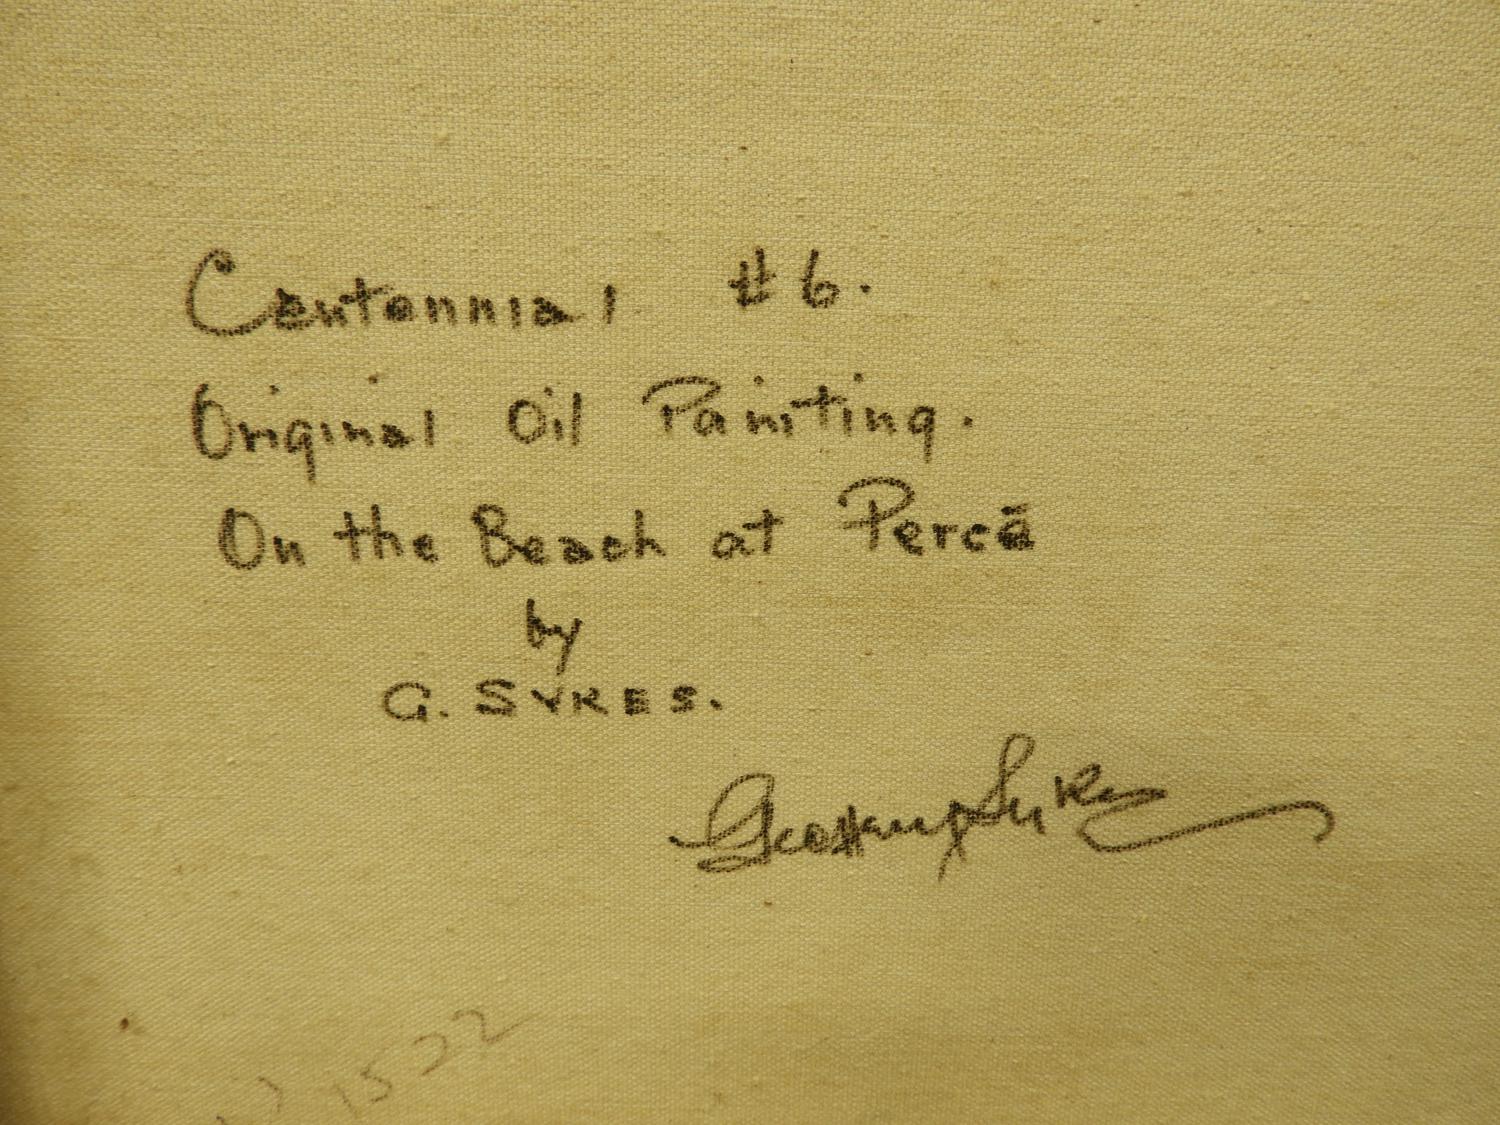 Centennial #6.
Original Oil Painting.
On the Beach at Percé
by
G. SYKES.
Sykes
1522